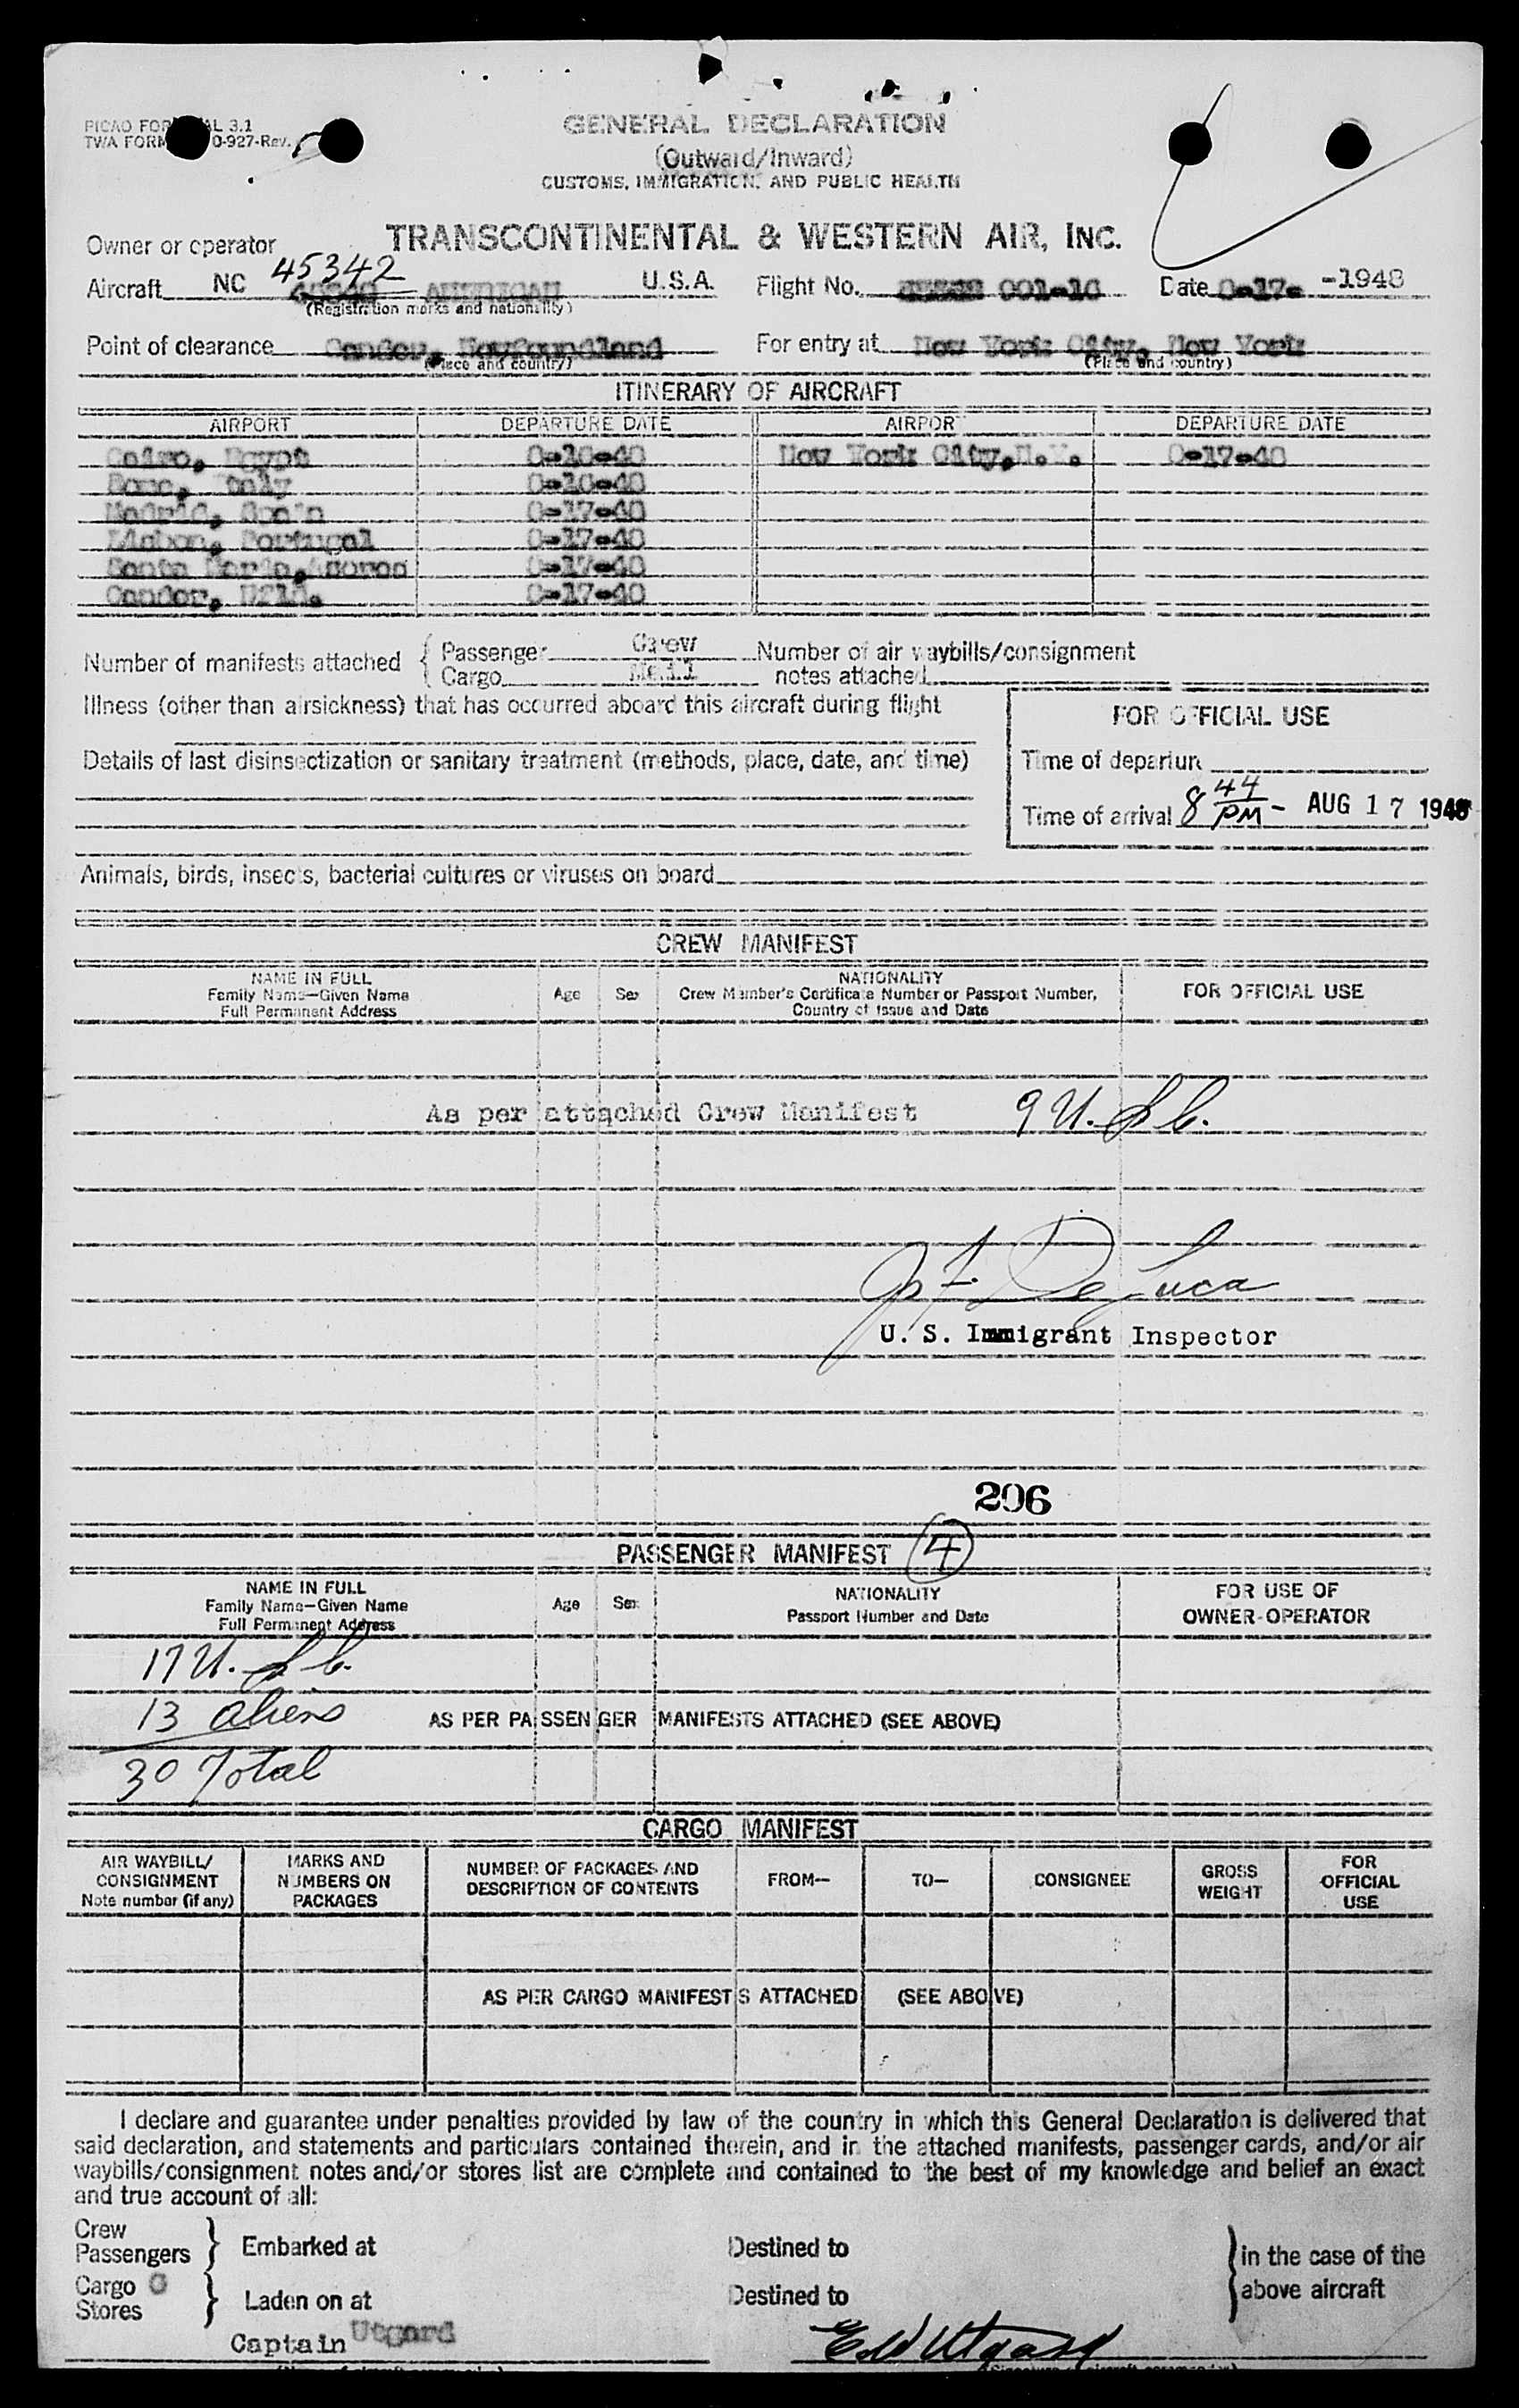 GENERAL DECLARATION
(Outward/Inward)
CUSTOMS, IMMIGRATION, AND PUBLIC HEALTH
PICAO FOR AL 3.1
TWA FORM 0-927-Rev.
TRANSCONTINENTAL & WESTERN AIR, INC.
Owner or operator
Aircraft NC 45342 AMERICAN U.S.A. Flight No. 901-16 Date 8-17- -1948
(Registration marks and nationality)
Point of clearance Gander, Newfoundland For entry at New York City, New York
(Place and country) (Place and country)
ITINERARY OF AIRCRAFT
AIRPORT DEPARTURE DATE AIRPORT DEPARTURE DATE
Cairo, Egypt 8-16-48 New York City, N.Y. 8-17-48
Rome, Italy 8-16-48
Madrid, Spain 8-17-48
Lisbon, Portugal 8-17-48
Santa Maria, Azores 8-17-48
Gander, Nfld. 8-17-48
Number of manifests attached { Passenger Crew Number of air waybills/consignment
Cargo Mail notes attached
Illness (other than airsickness) that has occurred aboard this aircraft during flight
FOR OFFICIAL USE
Details of last disinsectization or sanitary treatment (methods, place, date, and time)
Time of departure
Time of arrival 8 44 PM - AUG 17 1948
Animals, birds, insects, bacterial cultures or viruses on board
CREW MANIFEST
NAME IN FULL
Family Name—Given Name
Full Permanent Address
Age Sex
NATIONALITY
Crew Member's Certificate Number or Passport Number,
Country of Issue and Date
FOR OFFICIAL USE
As per attached Crew Manifest 9 U.S.C.
Jos F. DeLuca
U. S. Immigrant Inspector
206
PASSENGER MANIFEST 4
NAME IN FULL
Family Name—Given Name
Full Permanent Address
Age Sex
NATIONALITY
Passport Number and Date
FOR USE OF
OWNER-OPERATOR
17 U.S.C.
13 aliens AS PER PASSENGER MANIFESTS ATTACHED (SEE ABOVE)
30 Total
CARGO MANIFEST
AIR WAYBILL/
CONSIGNMENT
Note number (if any)
MARKS AND
NUMBERS ON
PACKAGES
NUMBER OF PACKAGES AND
DESCRIPTION OF CONTENTS
FROM—
TO—
CONSIGNEE
GROSS
WEIGHT
FOR
OFFICIAL
USE
AS PER CARGO MANIFESTS ATTACHED (SEE ABOVE)
I declare and guarantee under penalties provided by law of the country in which this General Declaration is delivered that
said declaration, and statements and particulars contained therein, and in the attached manifests, passenger cards, and/or air
waybills/consignment notes and/or stores list are complete and contained to the best of my knowledge and belief an exact
and true account of all:
Crew
Passengers } Embarked at Destined to } in the case of the
Cargo
Stores } Laden on at Destined to above aircraft
Captain Utgard